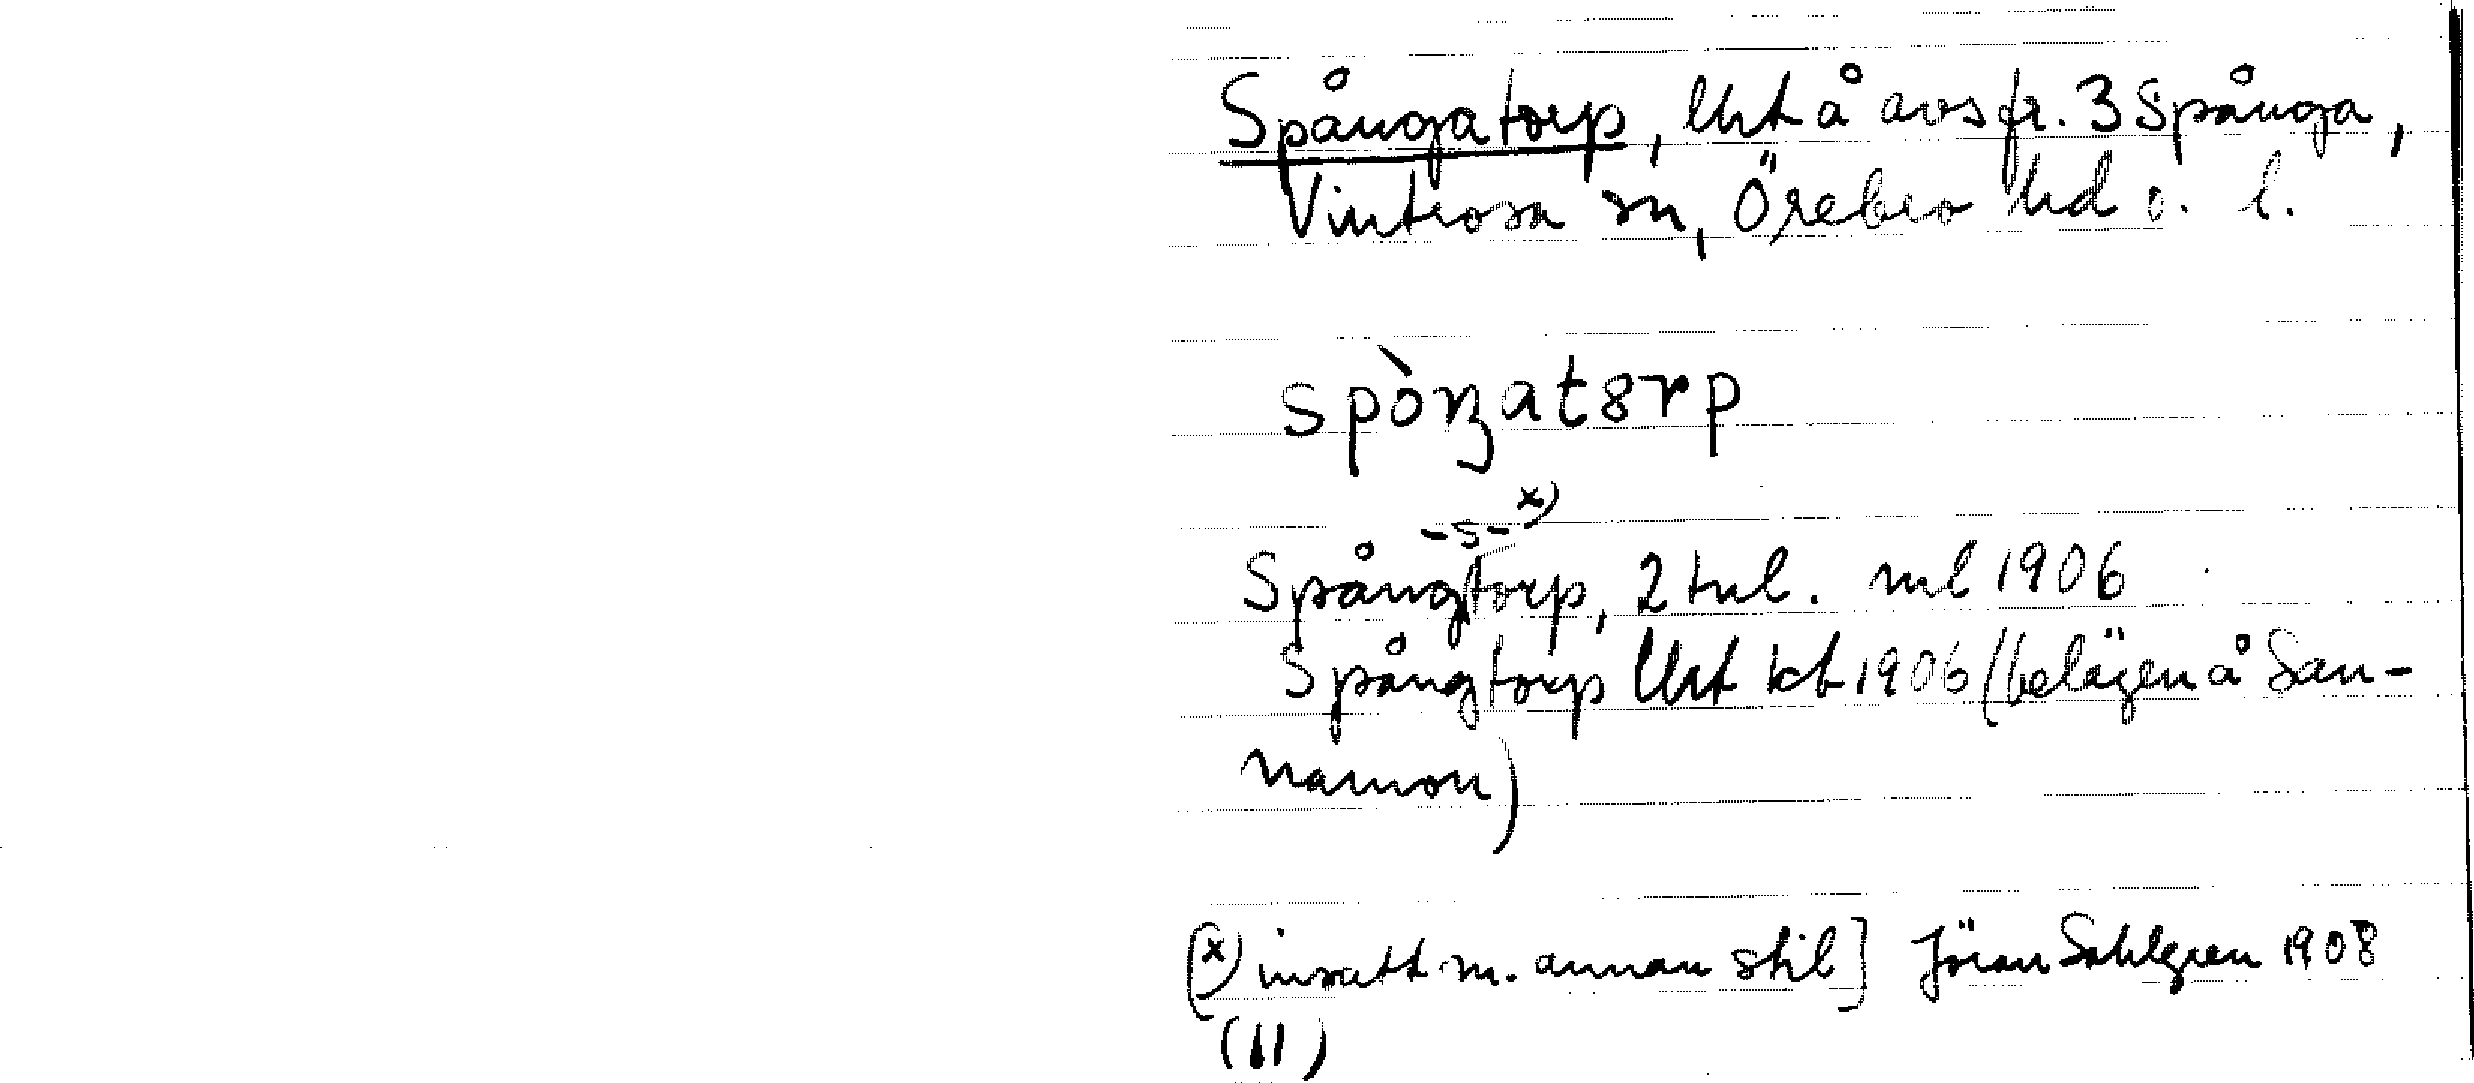 Spångatorp, lht å avs fr. 3 Spånga,
Vintrosa sn, Örebro hd o. l.
spòŋatȣrp
-s- x)
Spångtorp, 2 tnl. ml 1906
Spångtorp lht kb 1906 (belägen å San-
namon)
[x) insatt m. annan stil] Jöran Sahlgren 1908
(11)